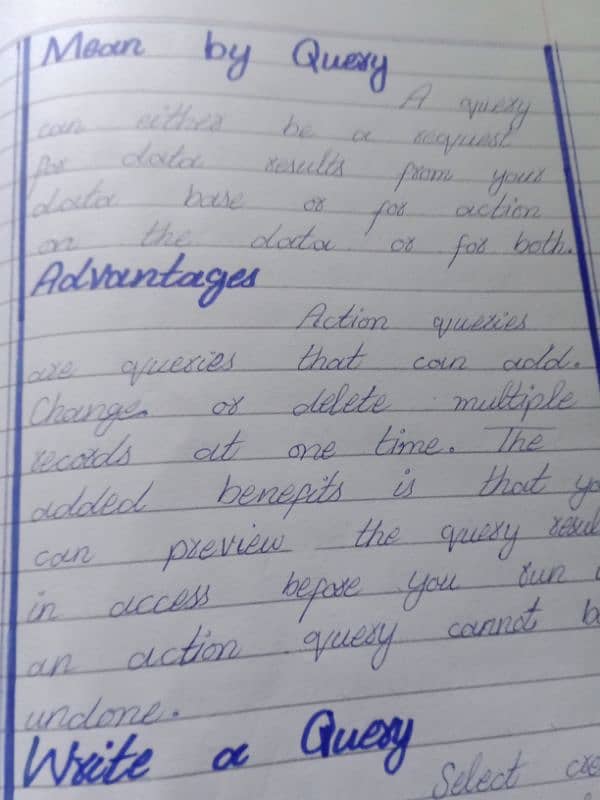 Mean by Query
A query
can either be a request
for data results from your
data base or for action
on the data or for both.
Advantages
Action queries
are queries that can add.
Change or delete multiple
records at one time. The
added benefits is that
can preview the query
in access before you run
an action query cannot
undone.
Write a Query
Select